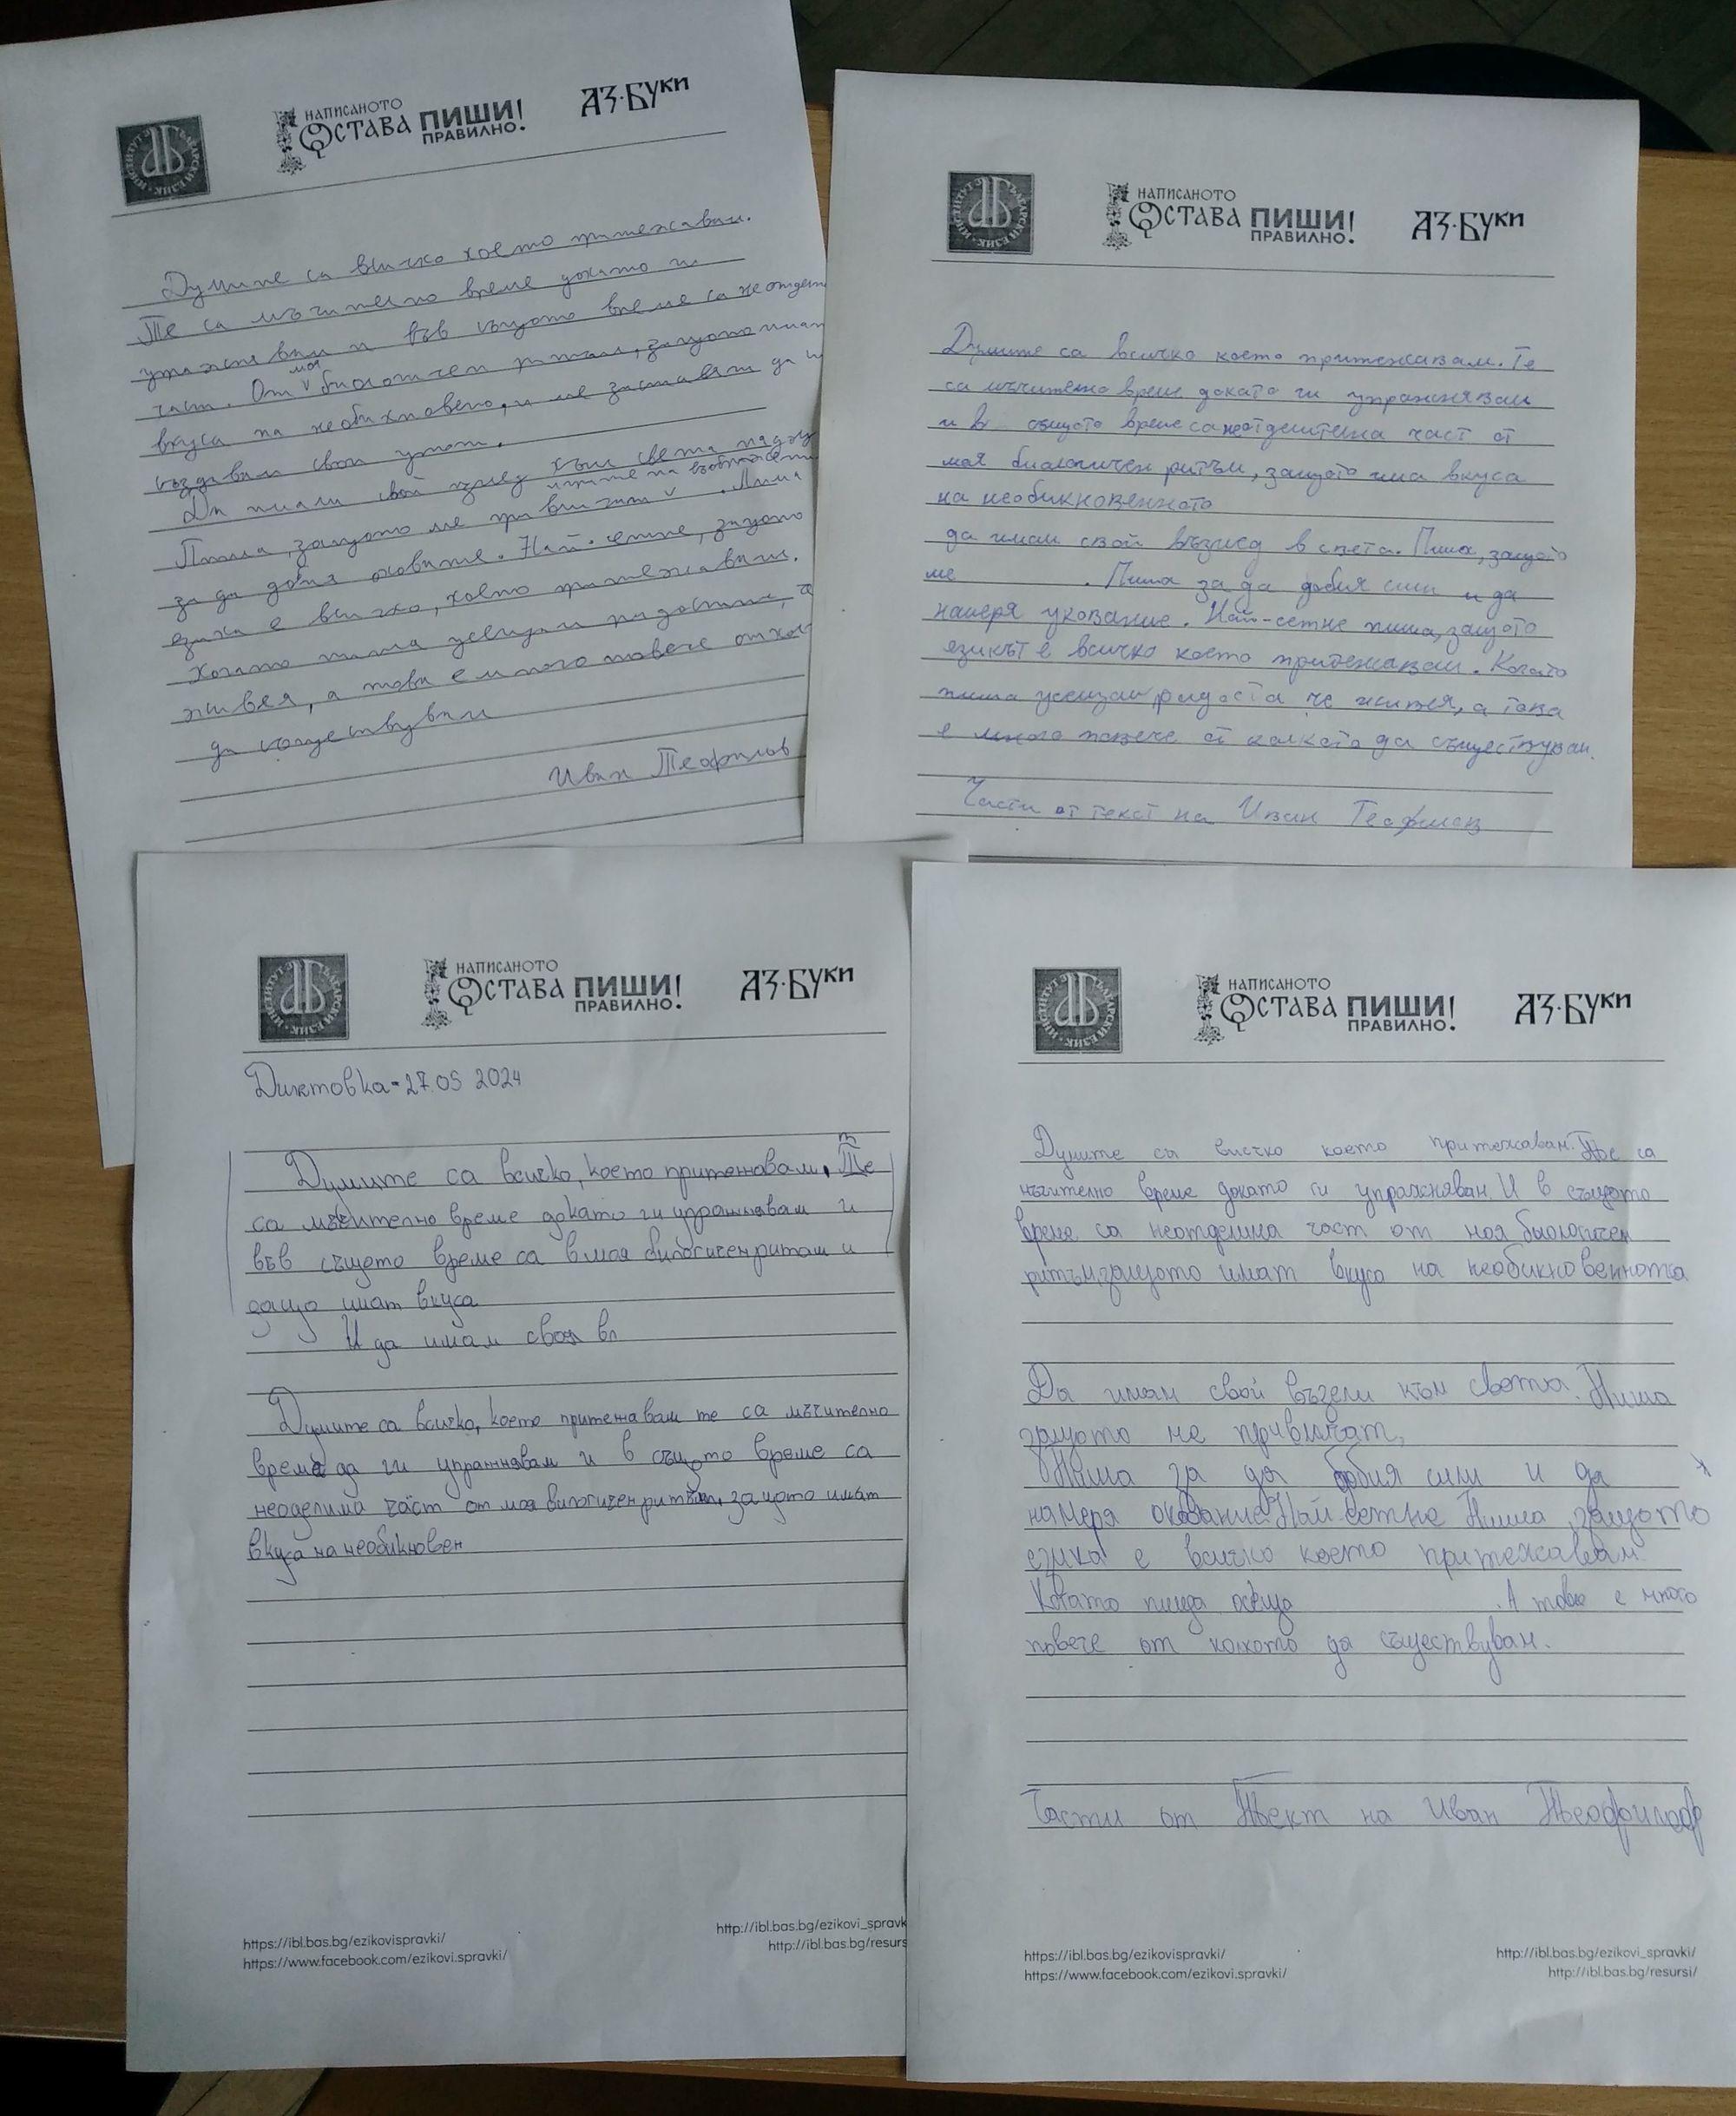 НАПИСАНОТО
ОСТАВА ПИШИ!
ПРАВИЛНО!
АЗ·БУКИ
Думите са всичко което притежавам.
Те са мъчително време докато ги
упражнявам и във същото време са неотдели
част. От моя биологичен ритъм, защото имат
вкуса на необикновено, и ме заставят да
създавам свои
Да имам свой към света
Пиша, защото ме привличат . Пиша
за да добия оковите. Най-сетне, защото
езика е всичко, което притежавам.
Когато пиша усещам радостта, ч
живея, а това е много повече откол
да съществувам
Иван Теофилов
НАПИСАНОТО
ОСТАВА ПИШИ!
ПРАВИЛНО!
АЗ·БУКИ
Думите са всичко което притежавам. Те
са мъчително време докато ги упражнявам
и в същото време са неотделима част от
моя биологичен ритъм, защото има вкуса
на необикновенното
да имам свой възглед в света. Пиша, защото
ме . Пиша за да добия сили и да
намеря укование. Най-сетне пиша, защото
езикът е всичко което притежавам. Когато
пиша усещам радоста че живея, а това
е много повече от колкото да съществувам.
Части от текст на Иван Теофилов
НАПИСАНОТО
ОСТАВА ПИШИ!
ПРАВИЛНО!
АЗ·БУКИ
Диктовка-27.05 2024
Думите са всичко, което притежавам, Те
са мъчително време докато ги упражнявам и
във същото време са в моя билогичен ритам и
защо имат вкуса
И да имам своя въ
Думите са всичко, което притежавам те са мъчително
време да ги упражнявам и в същото време са
неоделима част от моя билогичен ритъм, защото имат
вкуса на необикновен
https://ibl.bas.bg/ezikovispravki/
https://www.facebook.com/ezikovi.spravki/
http://ibl.bas.bg/ezikovi_spravk
http://ibl.bas.bg/resurs
НАПИСАНОТО
ОСТАВА ПИШИ!
ПРАВИЛНО!
АЗ·БУКИ
Думите съ висчко което притежавам. Те са
мъчително време докато ги упражнявам И в същото
време са неотделима част от моя биологичен
ритъм, защото имат вкуса на необикновеннота
Да имам свой възгели към света. Пиша
защото ме привличат,
Пиша за да добия сили и да
намеря окование. Най-сетне Пиша, защото
езика е всичко което притежавам.
Когато пиша осеща . А това е много
повече от колкото да съществувам.
Части от Текст на Иван Теофилоф
https://ibl.bas.bg/ezikovispravki/
https://www.facebook.com/ezikovi.spravki/
http://ibl.bas.bg/ezikovi_spravki/
http://ibl.bas.bg/resursi/